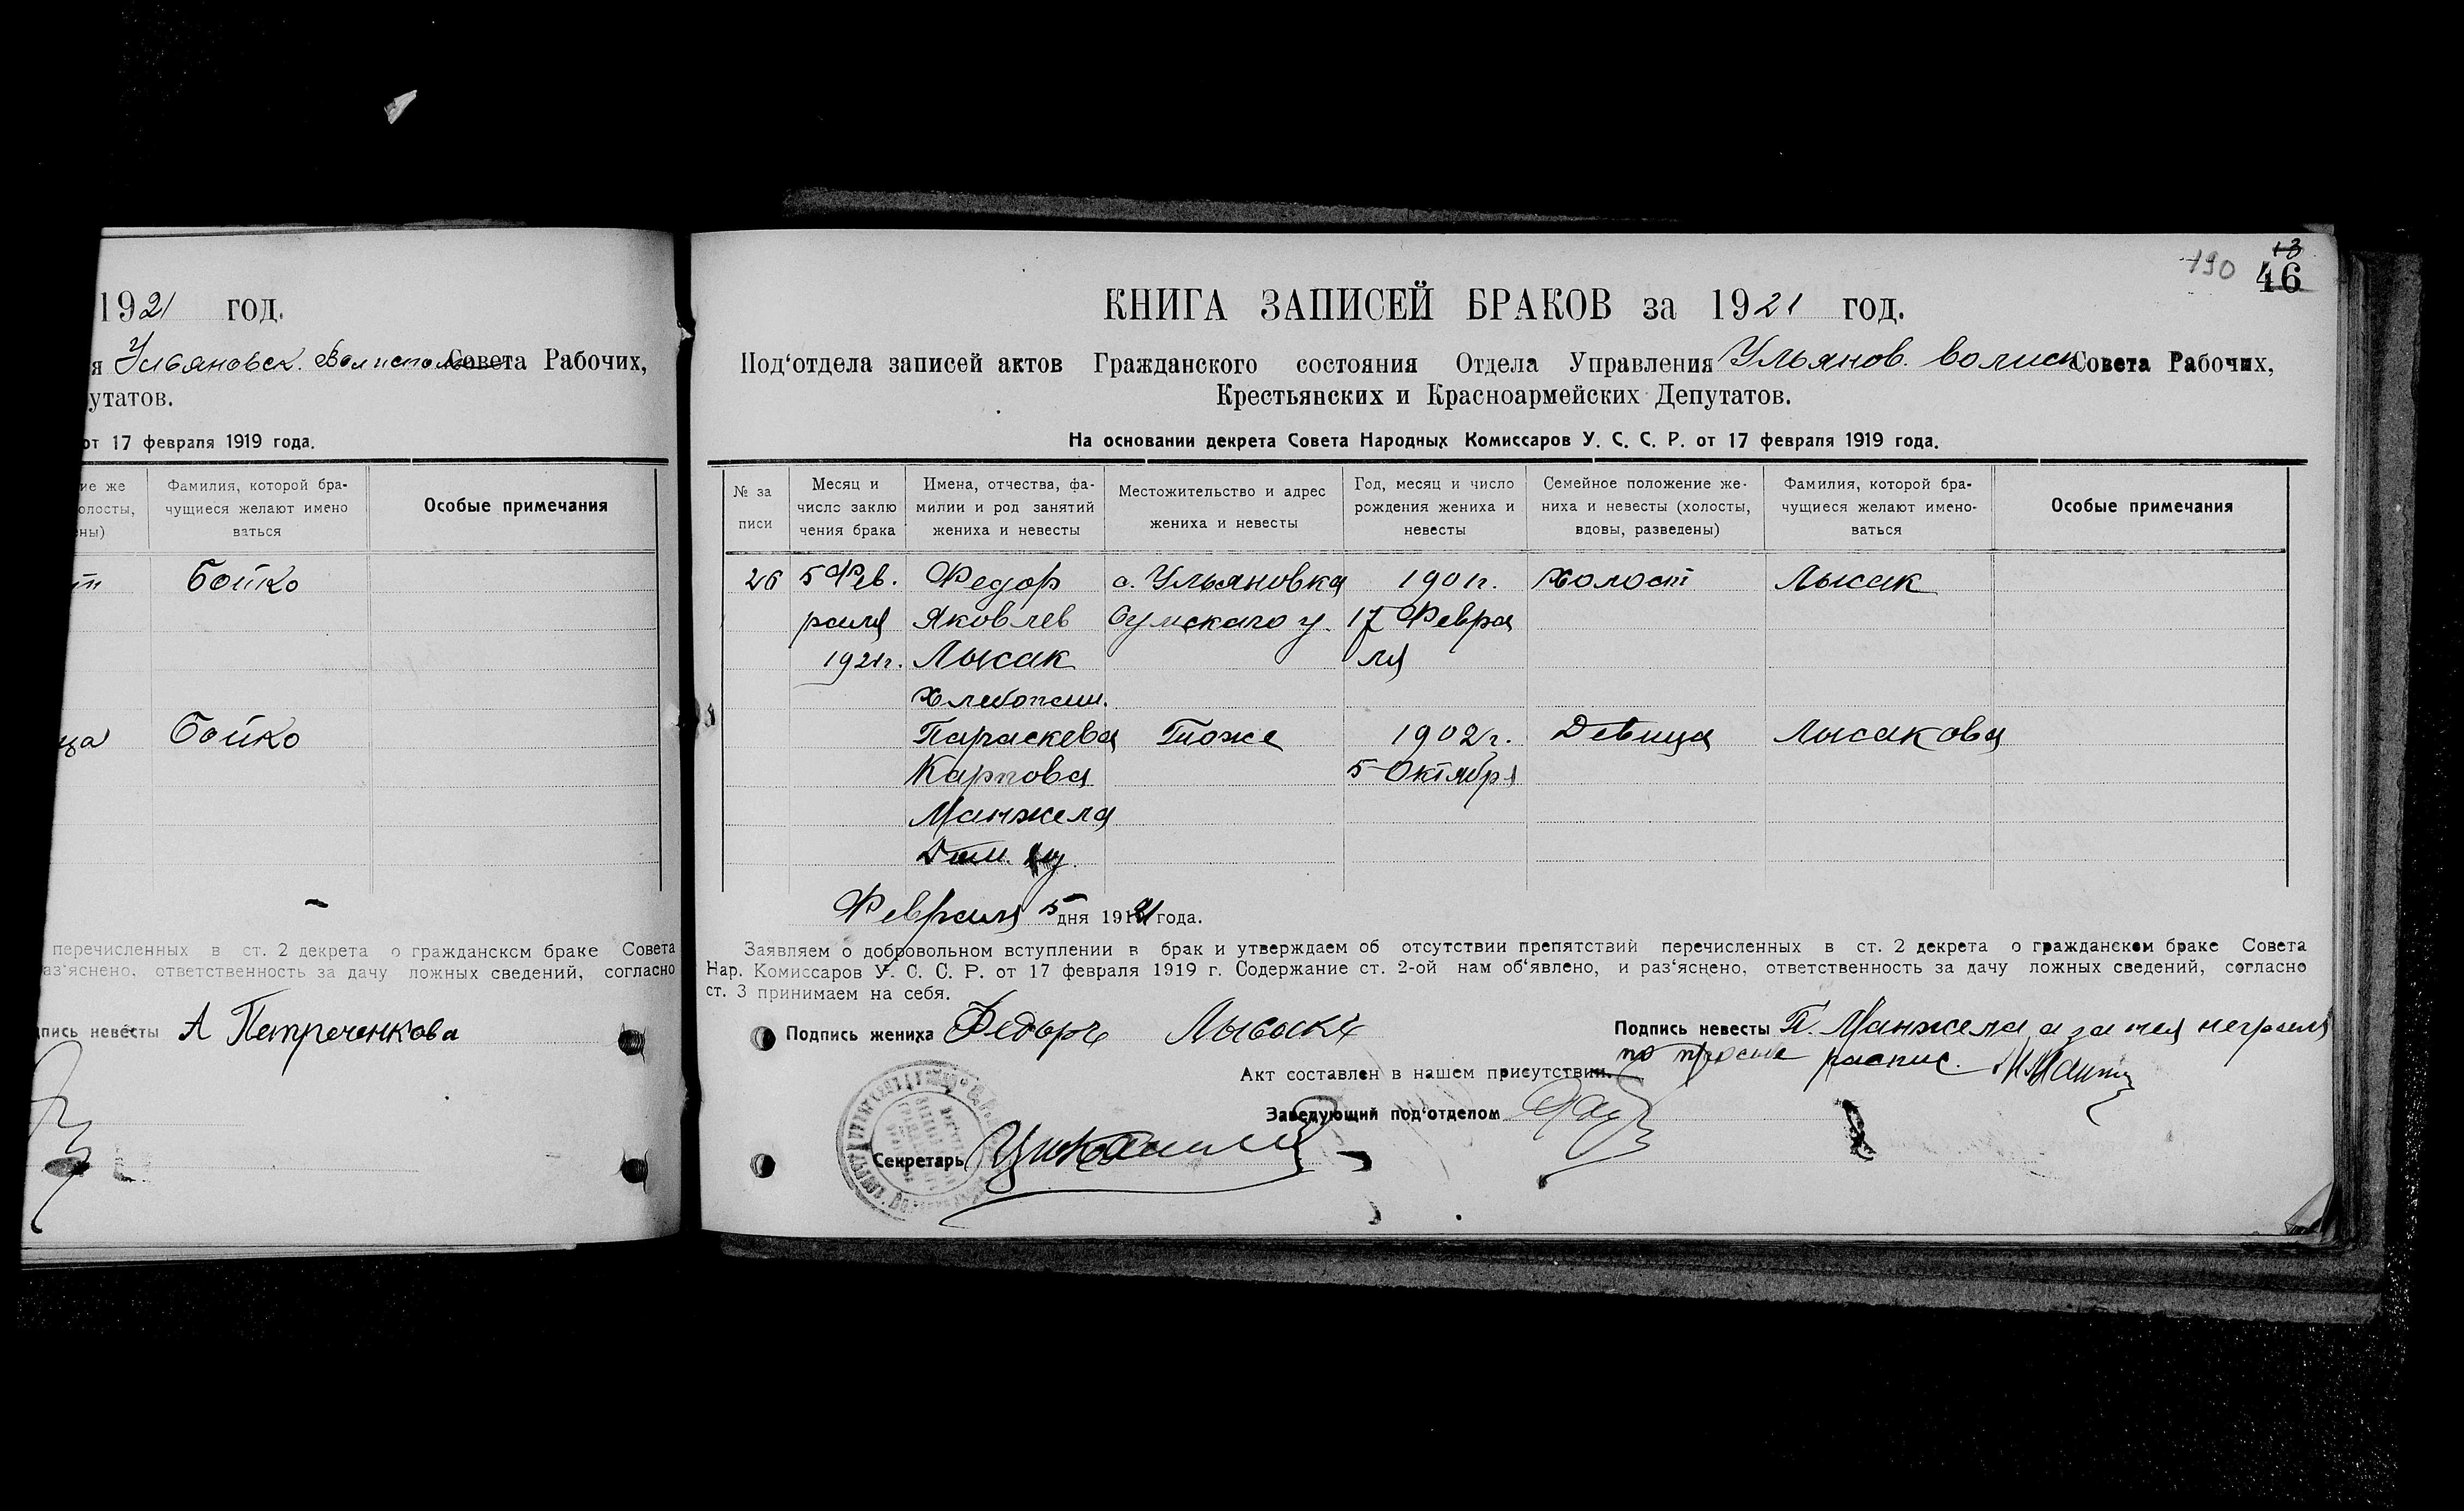 1921 год.
я Ульяновск. Волисполком Совета Рабочих,
утатов.
от 17 февраля 1919 года.
ие же
олосты,
ны)
Фамилия, которой бра-
чущиеся желают имено
ваться
Особые примечания
Бойко
ца Бойко
перечисленных в ст. 2 декрета о гражданском браке Совета
аз'яснено, ответственность за дачу ложных сведений, согласно
пись невесты А Петреченкова
190 13
46
КНИГА ЗАПИСЕЙ БРАКОВ за 1921 год.
Под'отдела записей актов Гражданского состояния Отдела Управления Ульянов. волисп Совета Рабочих,
Крестьянских и Красноармейских Депутатов.
На основании декрета Совета Народных Комиссаров У. С. С. Р. от 17 февраля 1919 года.
№ за
писи
Месяц и
число заклю
чения брака
Имена, отчества, фа-
милии и род занятий
жениха и невесты
Местожительство и адрес
жениха и невесты
Год, месяц и число
рождения жениха и
невесты
Семейное положение же-
ниха и невесты (холосты,
вдовы, разведены)
Фамилия, которой бра-
чущиеся желают имено-
ваться
Особые примечания
26 5 Фев. Федор с. Ульяновка 1901г. холост Лысак
раля Яковлев Сумскаго у. 17 Февра
1921г. Лысак ля
Хлебопаш.
Параскева Тоже 1902г. Девица Лысакова
Карпова 5 Октября
Манжела
Дом. хоз.
Февраля 5 дня 1921 года.
Заявляем о добровольном вступлении в брак и утверждаем об отсутствии препятствий перечисленных в ст. 2 декрета о гражданском браке Совета
Нар. Комиссаров У. С. С. Р. от 17 февраля 1919 г. Содержание ст. 2-ой нам об'явлено, и раз'яснено, ответственность за дачу ложных сведений, согласно
ст. 3 принимаем на себя.
Подпись жениха Федоръ Лысакъ
Подпись невесты П. Манжела а за нея неграмот
по просьбе распис.
Акт составлен в нашем присутствии.
Заведующий под'отделом
Секретарь